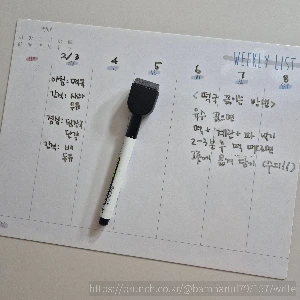 WEEKLY LIST
2/3
4
5
6
7
8
아침: 떡국
간식: 사과
두유
점심: 된장국
간식:
두유
<떡국 끓이는 방법>
육수 끓으면
떡 + 계란 + 파 넣기
2~3분 후 떡 떠오르면
그릇에 옮겨 담기
https://brunch.co.kr/@bamhanul79/157/write